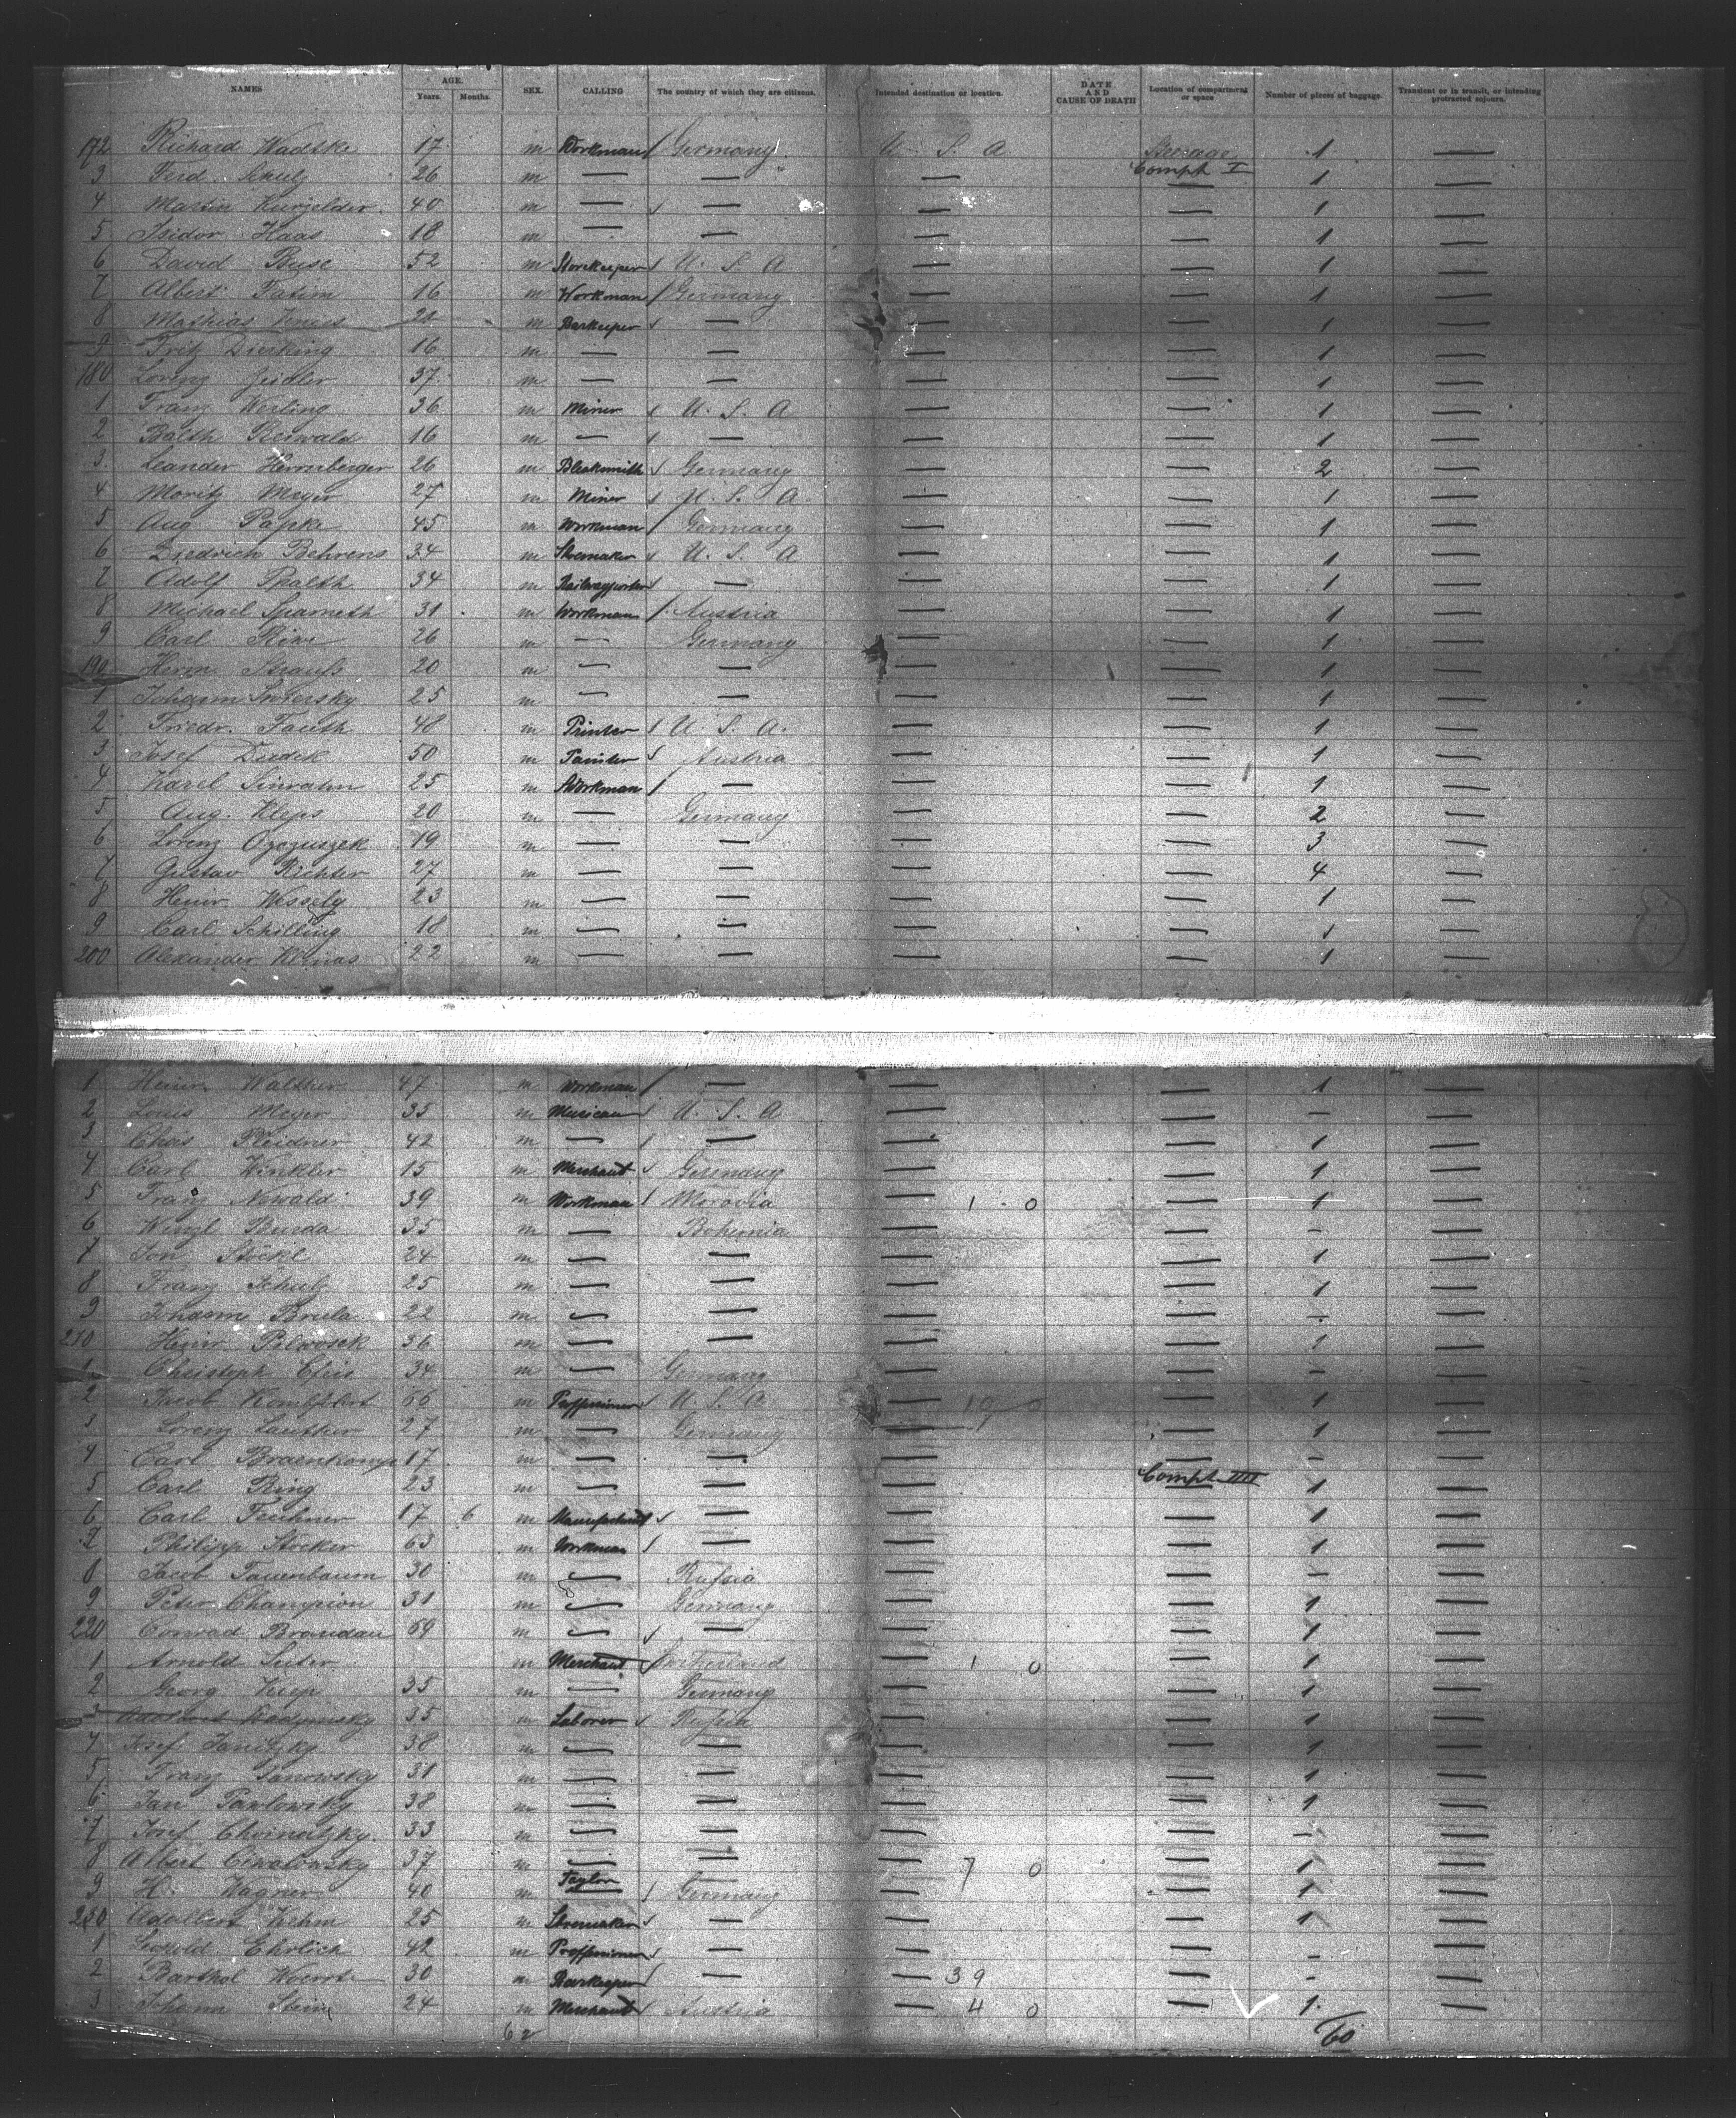 NAMES AGE. Years. Months. SEX. CALLING The country of which they are citizens. Intended destination or location. DATE AND CAUSE OF DEATH Location of compartment or space Number of pieces of baggage. Transient or in transit, or intending protracted sojourn.
172 Richard Wadtke 17 m Workman / Germany U. S. A Steerage 1 —
Compt I
3 Ferd. Schulz 26 m — — — — 1 —
4 Martin 40 m — — — — 1 —
5 Isidor Haas 18 m — — — — 1 —
6 David Buse 52 m Storekeeper U. S. A — — 1 —
7 Albert Fatim 16 m Workman / Germany — — 1 —
8 Mathias 21 m Barkeeper — — — 1 —
9 Fritz Dierking 16 m — — — — 1 —
180 Lorenz Zeidler 37 m — — — — 1 —
1 Franz Werling 36 m Miner U. S. A — — 1 —
2 Balth Beiwald 16 m — — — — 1 —
3 Leander Herrnberger 26 m Blacksmith Germany — — 2 —
4 Moritz Meyer 27 m Miner U. S. A — — 1 —
5 Aug Papke 45 m Workman / Germany — — 1 —
6 Diedrich Behrens 34 m Shoemaker U. S. A — — 1 —
7 Adolf 34 m Railwayporter — — — 1 —
8 Michael 31 m Workman / Austria — — 1 —
9 Carl 26 m — Germany — — 1 —
190 Herm. Strauss 20 m — — — — 1 —
1 Johann 25 m — — — — 1 —
2 Friedr. Fauth 48 m Printer U. S. A. — — 1 —
3 Josef Dudek 50 m Painter Austria — — 1 —
4 Karel 25 m Workman / — — — 1 —
5 Aug. Kleps 20 m — Germany — — 2 —
6 Lorenz 19 m — — — — 3 —
7 Gustav Richter 27 m — — — — 4 —
8 Heinr. Wessely 23 m — — — — 1 —
9 Carl Schilling 18 m — — — — 1 —
200 Alexander Konas 22 m — — — — 1 —
1 Heinr. Walther 47 m Workman / — — — 1 —
2 Louis Meyer 35 m Musican U. S. A — — — —
3 Chas Pleidner 42 m — — — — 1 —
4 Carl Winkler 15 m Merchant Germany — — 1 —
5 Franz Newald 39 m Workman / Moravia — 1 0 — 1 —
6 Wenzl Burda 35 m — Bohemia — — — —
7 Jon Stöckl 24 m — — — — 1 —
8 Franz Schulz 25 m — — — — 1 —
9 Johann 22 m — — — — — —
210 Heinr. 36 m — — — — 1 —
1 Christoph 34 m — Germany — — — —
2 Jacob 66 m U. S. A — 10 0 — 1 —
3 Lorenz Lauther 27 m — Germany — — 1 —
4 Carl Braenkamp 17 m — — — — — —
5 Carl Ring 23 m — — — Compt III 1 —
6 Carl 17 6 m — — — 1 —
7 Philipp Stocker 63 m Workman / — — — 1 —
8 Jacob Tauenbaum 30 m — Russia — — — —
9 Peter Champion 31 m — Germany — — 1 —
220 Conrad Brandau 69 m — — — — 1 —
1 Arnold Suter m Merchant — 1 0 — 1 —
2 Georg Kiep 35 m — Germany — — 1 —
3 35 m Laborer Russia — — 1 —
4 Josef Janitzky 38 m — — — — 1 —
5 Franz Janowsky 31 m — — — — 1 —
6 Jan Pawlowsky 38 m — — — — 1 —
7 Josef Choinatzky 33 m — — — — — —
8 Albert 37 m — — — 7 0 — 1 —
9 H. Wagner 40 m Taylor Germany — — 1 —
230 Adalbert Kehm 25 m Shoemaker — — — 1 —
1 Leopold Ehrlich 42 m — — — — —
2 Barthol 30 m Barkeeper — — 39 — — —
3 Johann 24 m Merchant Austria — 4 0 — 1 —
62 60